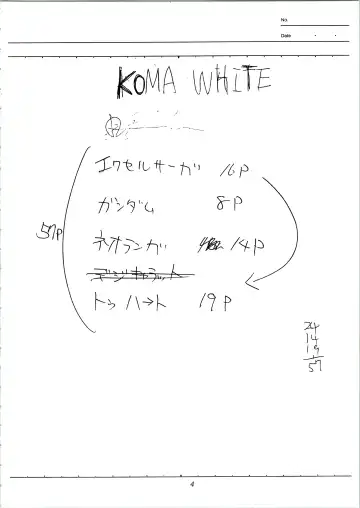 No.
Date
KOMA WHITE
エクセルサーガ 16P
ガンダム 8P
ネオランガ 14P
デジキャラット
トゥハート 19P
57P
24
14
19
57
4